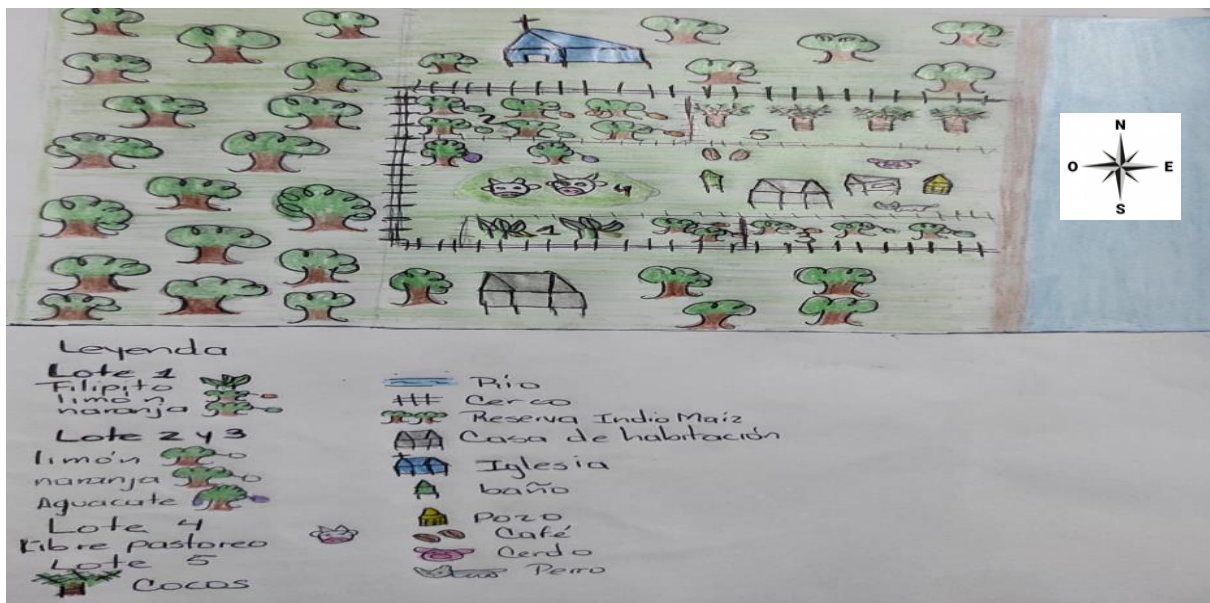 N
O E
S
2
5
4
1
3
Leyenda
Lote 1
Filipito
limón
naranja
Lote 2 y 3
limón
naranja
Aguacate
Lote 4
Libre pastoreo
Lote 5
Cocos
Río
Cerco
Reserva Indio Maíz
Casa de habitación
Iglesia
baño
Pozo
Café
Cerdo
Perro